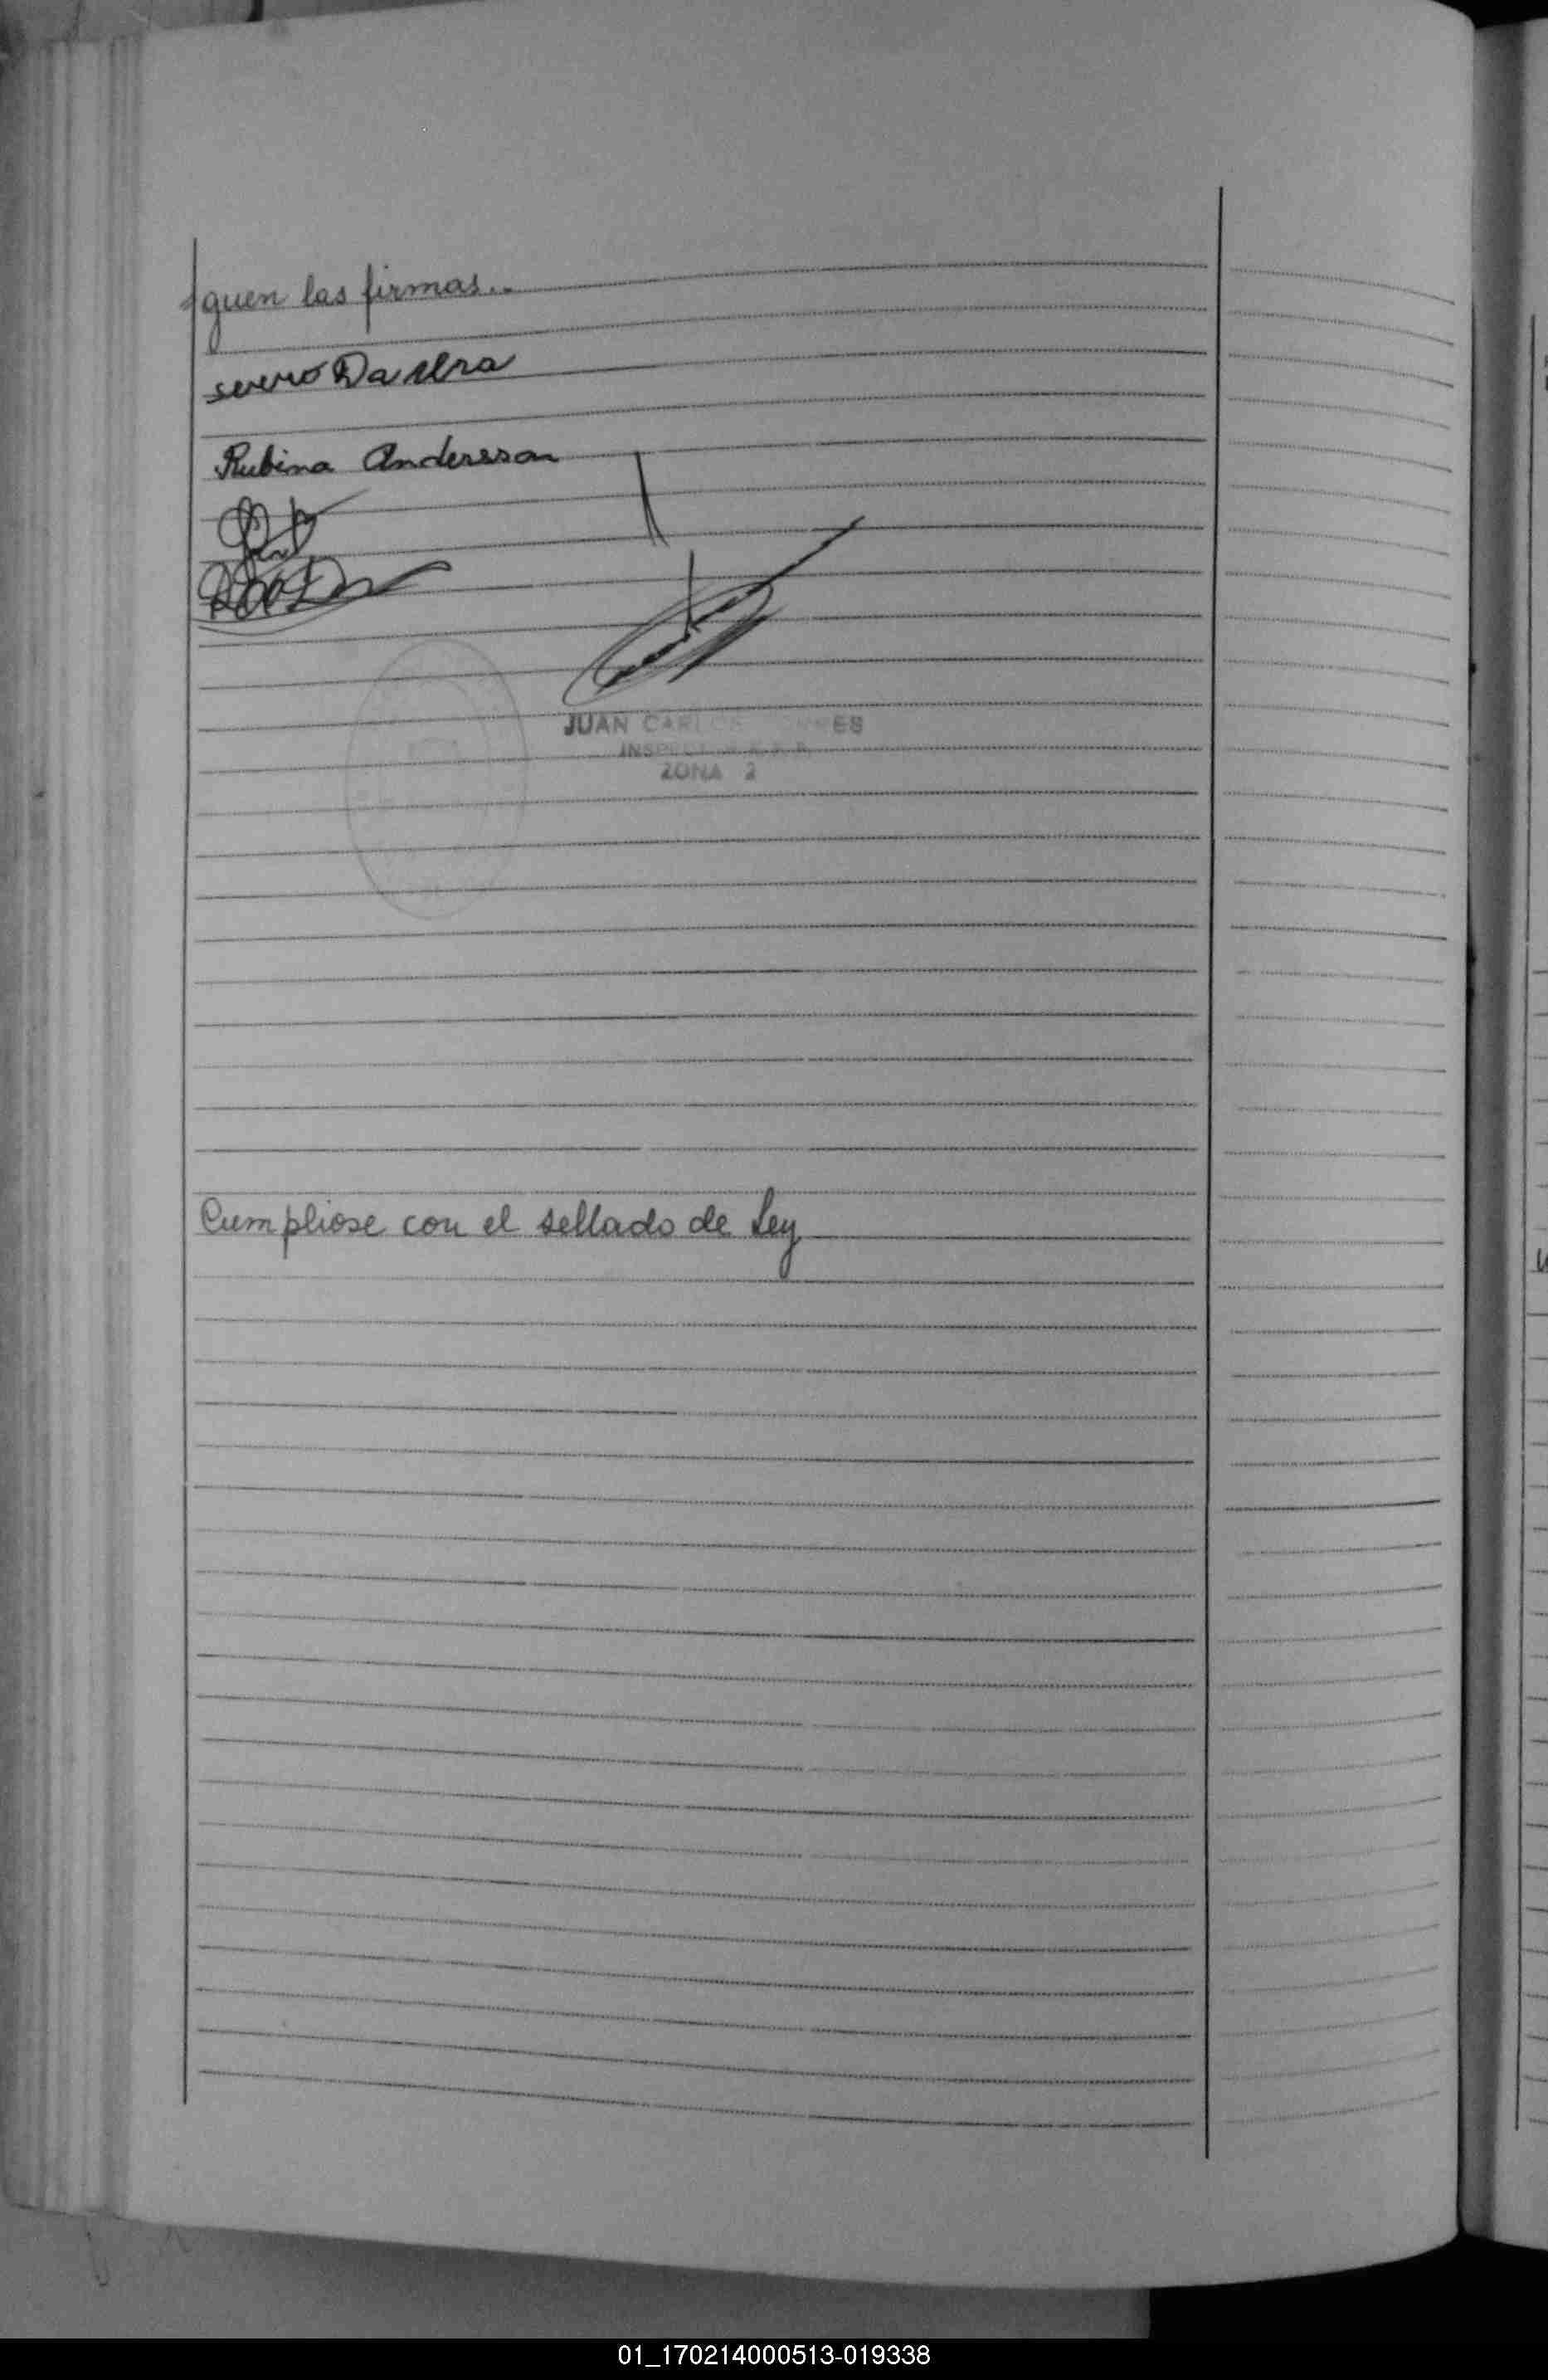 guen las firmas..
severo Da
Rubina Andersson
JUAN CARLOS
ZONA 2
Cumpliose con el sellado de Ley
01_170214000513-019338